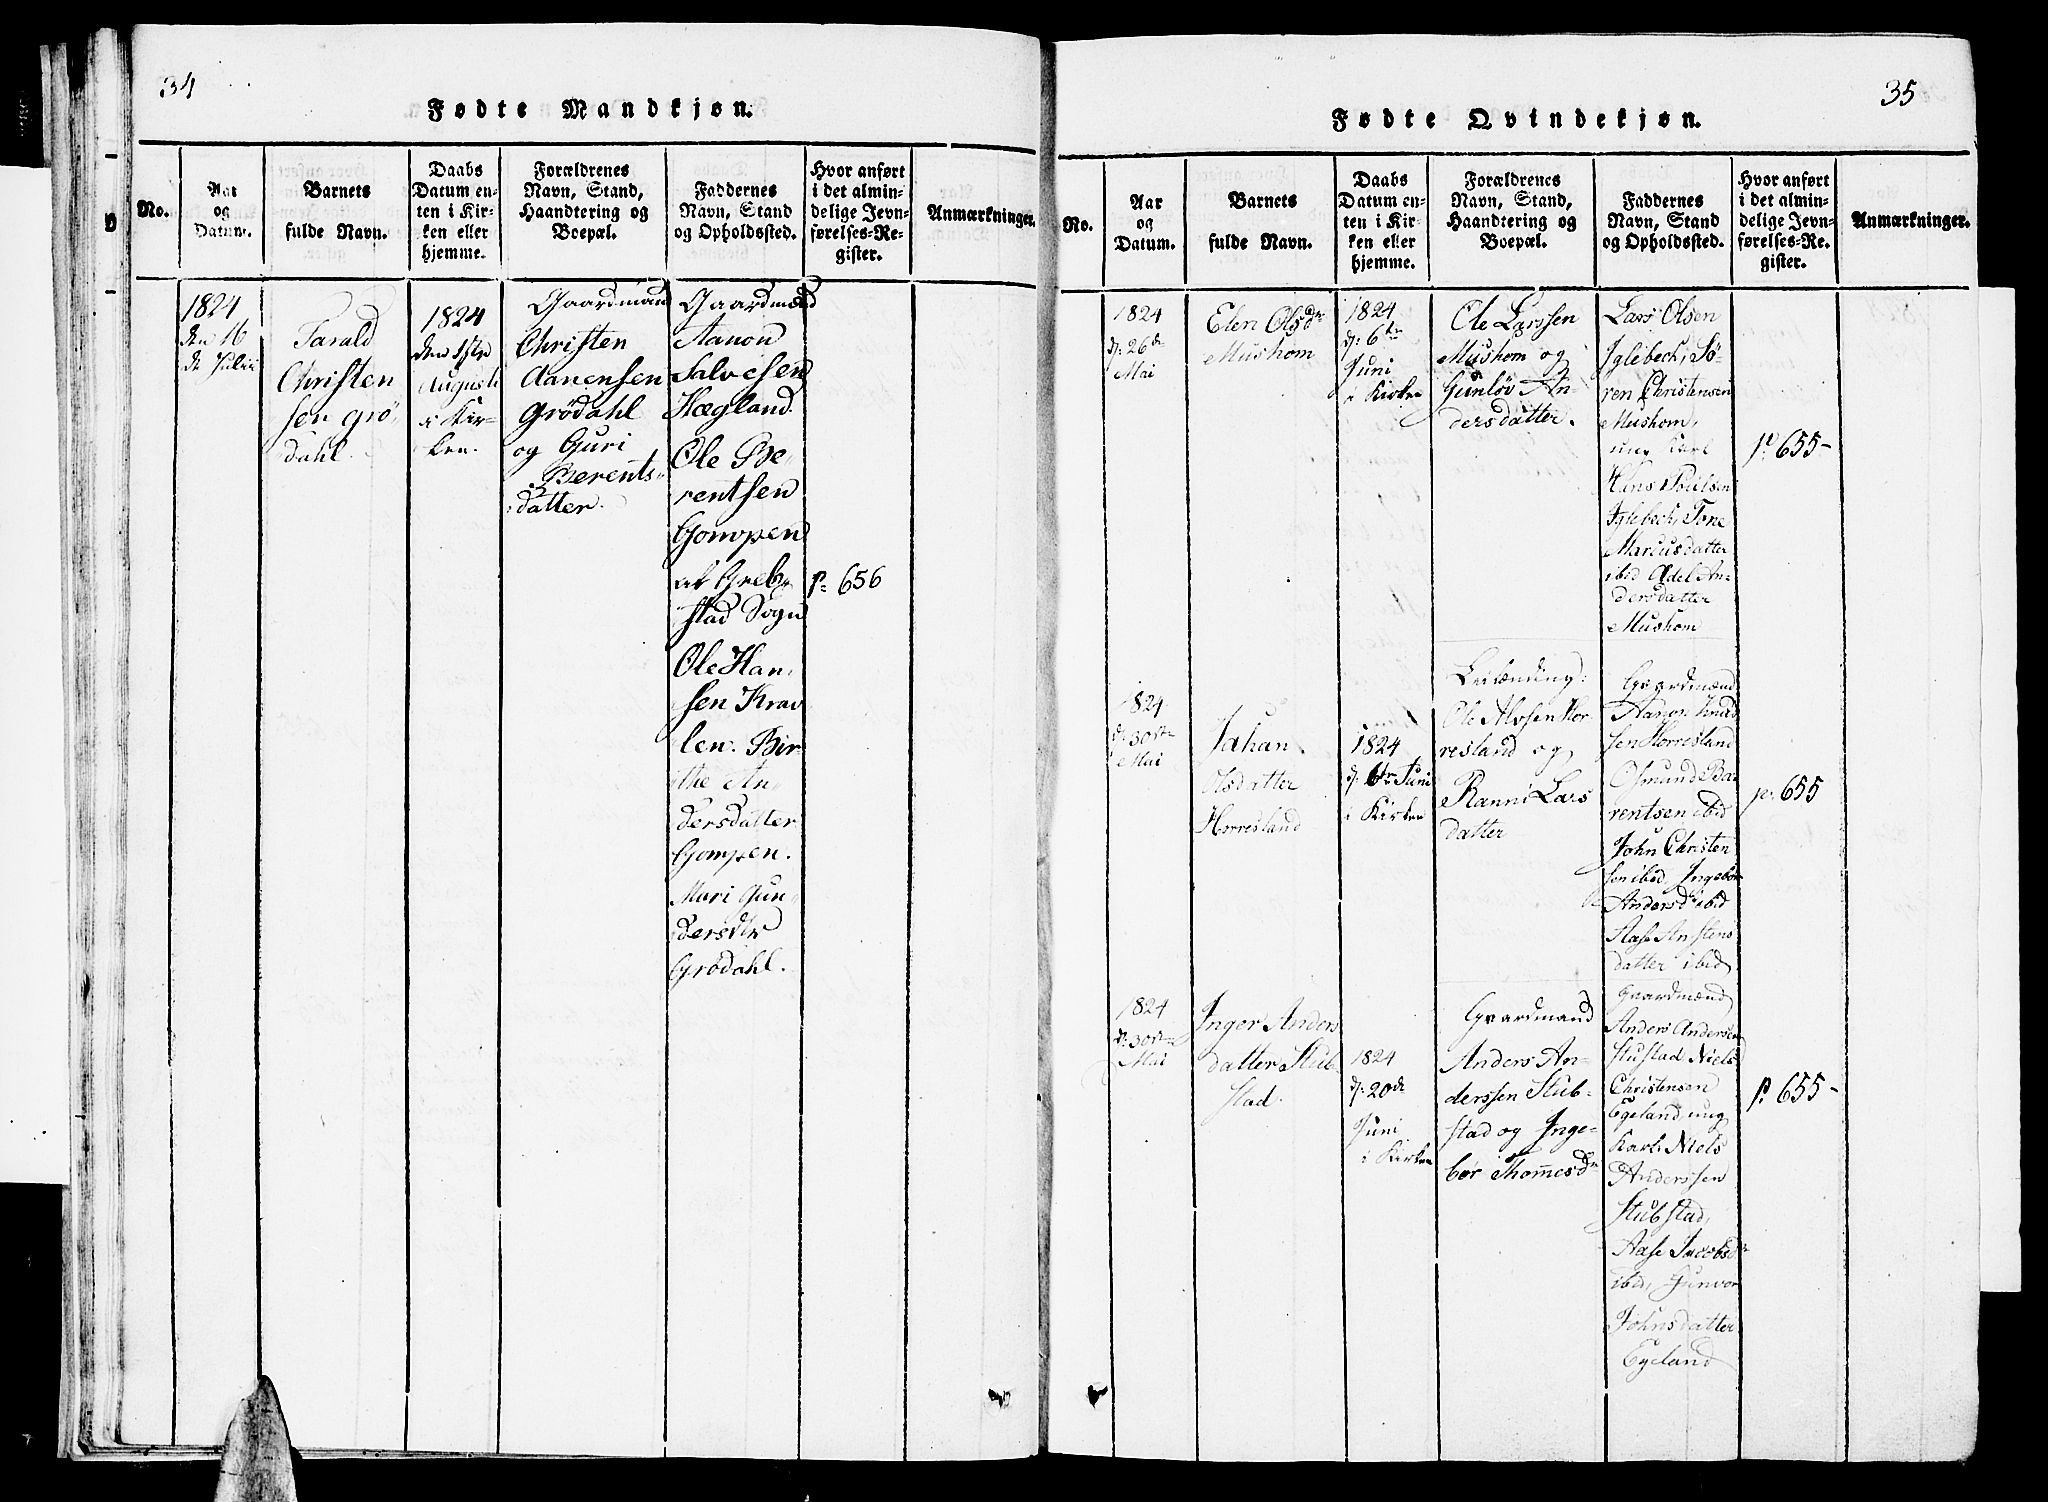 34
Fødte Mandkjøn.
No.
Aar
og
Datum.
Barnets
fulde Navn.
Daabs
Datum en-
ten i Kir-
ken eller
hjemme.
Forældrenes
Navn, Stand,
Haandtering og
Boepæl.
Faddernes
Navn, Stand
og Opholdssted.
Hvor anført
i det almin-
delige Jevn-
førelses-Re-
gister.
Anmærkninger.
1824
den 16
de Julii
Tarald
Christen
sen Grö
dahl.
1824
den 1ste
Augusti
i Kir-
ken.
Gaardmand
Christen
Aanensen
Grödahl
og Guri
Berents-
datter.
Gaardmænd
Aanon
Salvesen
Hægland.
Ole Be-
rentsen
Gompen
af Greb-
stad Sogn
Ole Han-
sen Krav
len. Bir
the An-
dersdatter
Gompen.
Mari Gun-
dersdtr
Grödahl.
p. 656
35
Fødte Qvindekjøn.
No.
Aar
og
Datum.
Barnets
fulde Navn.
Daabs
Datum en-
ten i Kir-
ken eller
hjemme.
Forældrenes
Navn, Stand,
Haandtering og
Boepæl.
Faddernes
Navn, Stand
og Opholdssted.
Hvor anført
i det almin-
delige Jevn-
førelses-Re-
gister.
Anmærkninger.
1824
d: 26de
Mai
Elen Olsdr
Mushom
1824
d: 6te
Juni
i Kirken
Ole Larssen
Mushom og
Gunlöv An-
dersdatter.
Lars Olsen
Iglebech, Sö-
ren Christensen
Mushom,
ung Karl
Hans Poulsen
Iglebech, Tone
Marcusdatter
ibid Adel An-
dersdatter
Mushom
p. 655-
1824
d: 30te
Mai
Johan
Olsdatter
Horresland
1824
d: 6te Juni
i Kirken
Leilænding:
Ole Alvsen Hor-
resland og
Ranni Lars
datter
Gaardmænd
Aanon Knud
sen Horresland
Osmund Ba-
rentsen ibid
John Christen
sen ibid, Ingebor
Andersdr ibid
Aase Anstens
datter ibid
p. 655
1824
d: 30te
Mai
Inger Anders
datter Stub-
stad.
1824
d: 20de
Juni
i Kirken
Gaardmand
Anders An-
derssen Stub-
stad og Inge-
bor Thomesdr
Gaardmænd
Anders Andersen
Stustad Niels
Christensen
Egeland, ung
Karl. Niels
Anderssen
Stubstad,
Aase Jacobsdr
ibid, Gunvor
Johnsdatter
Egeland
p. 655-